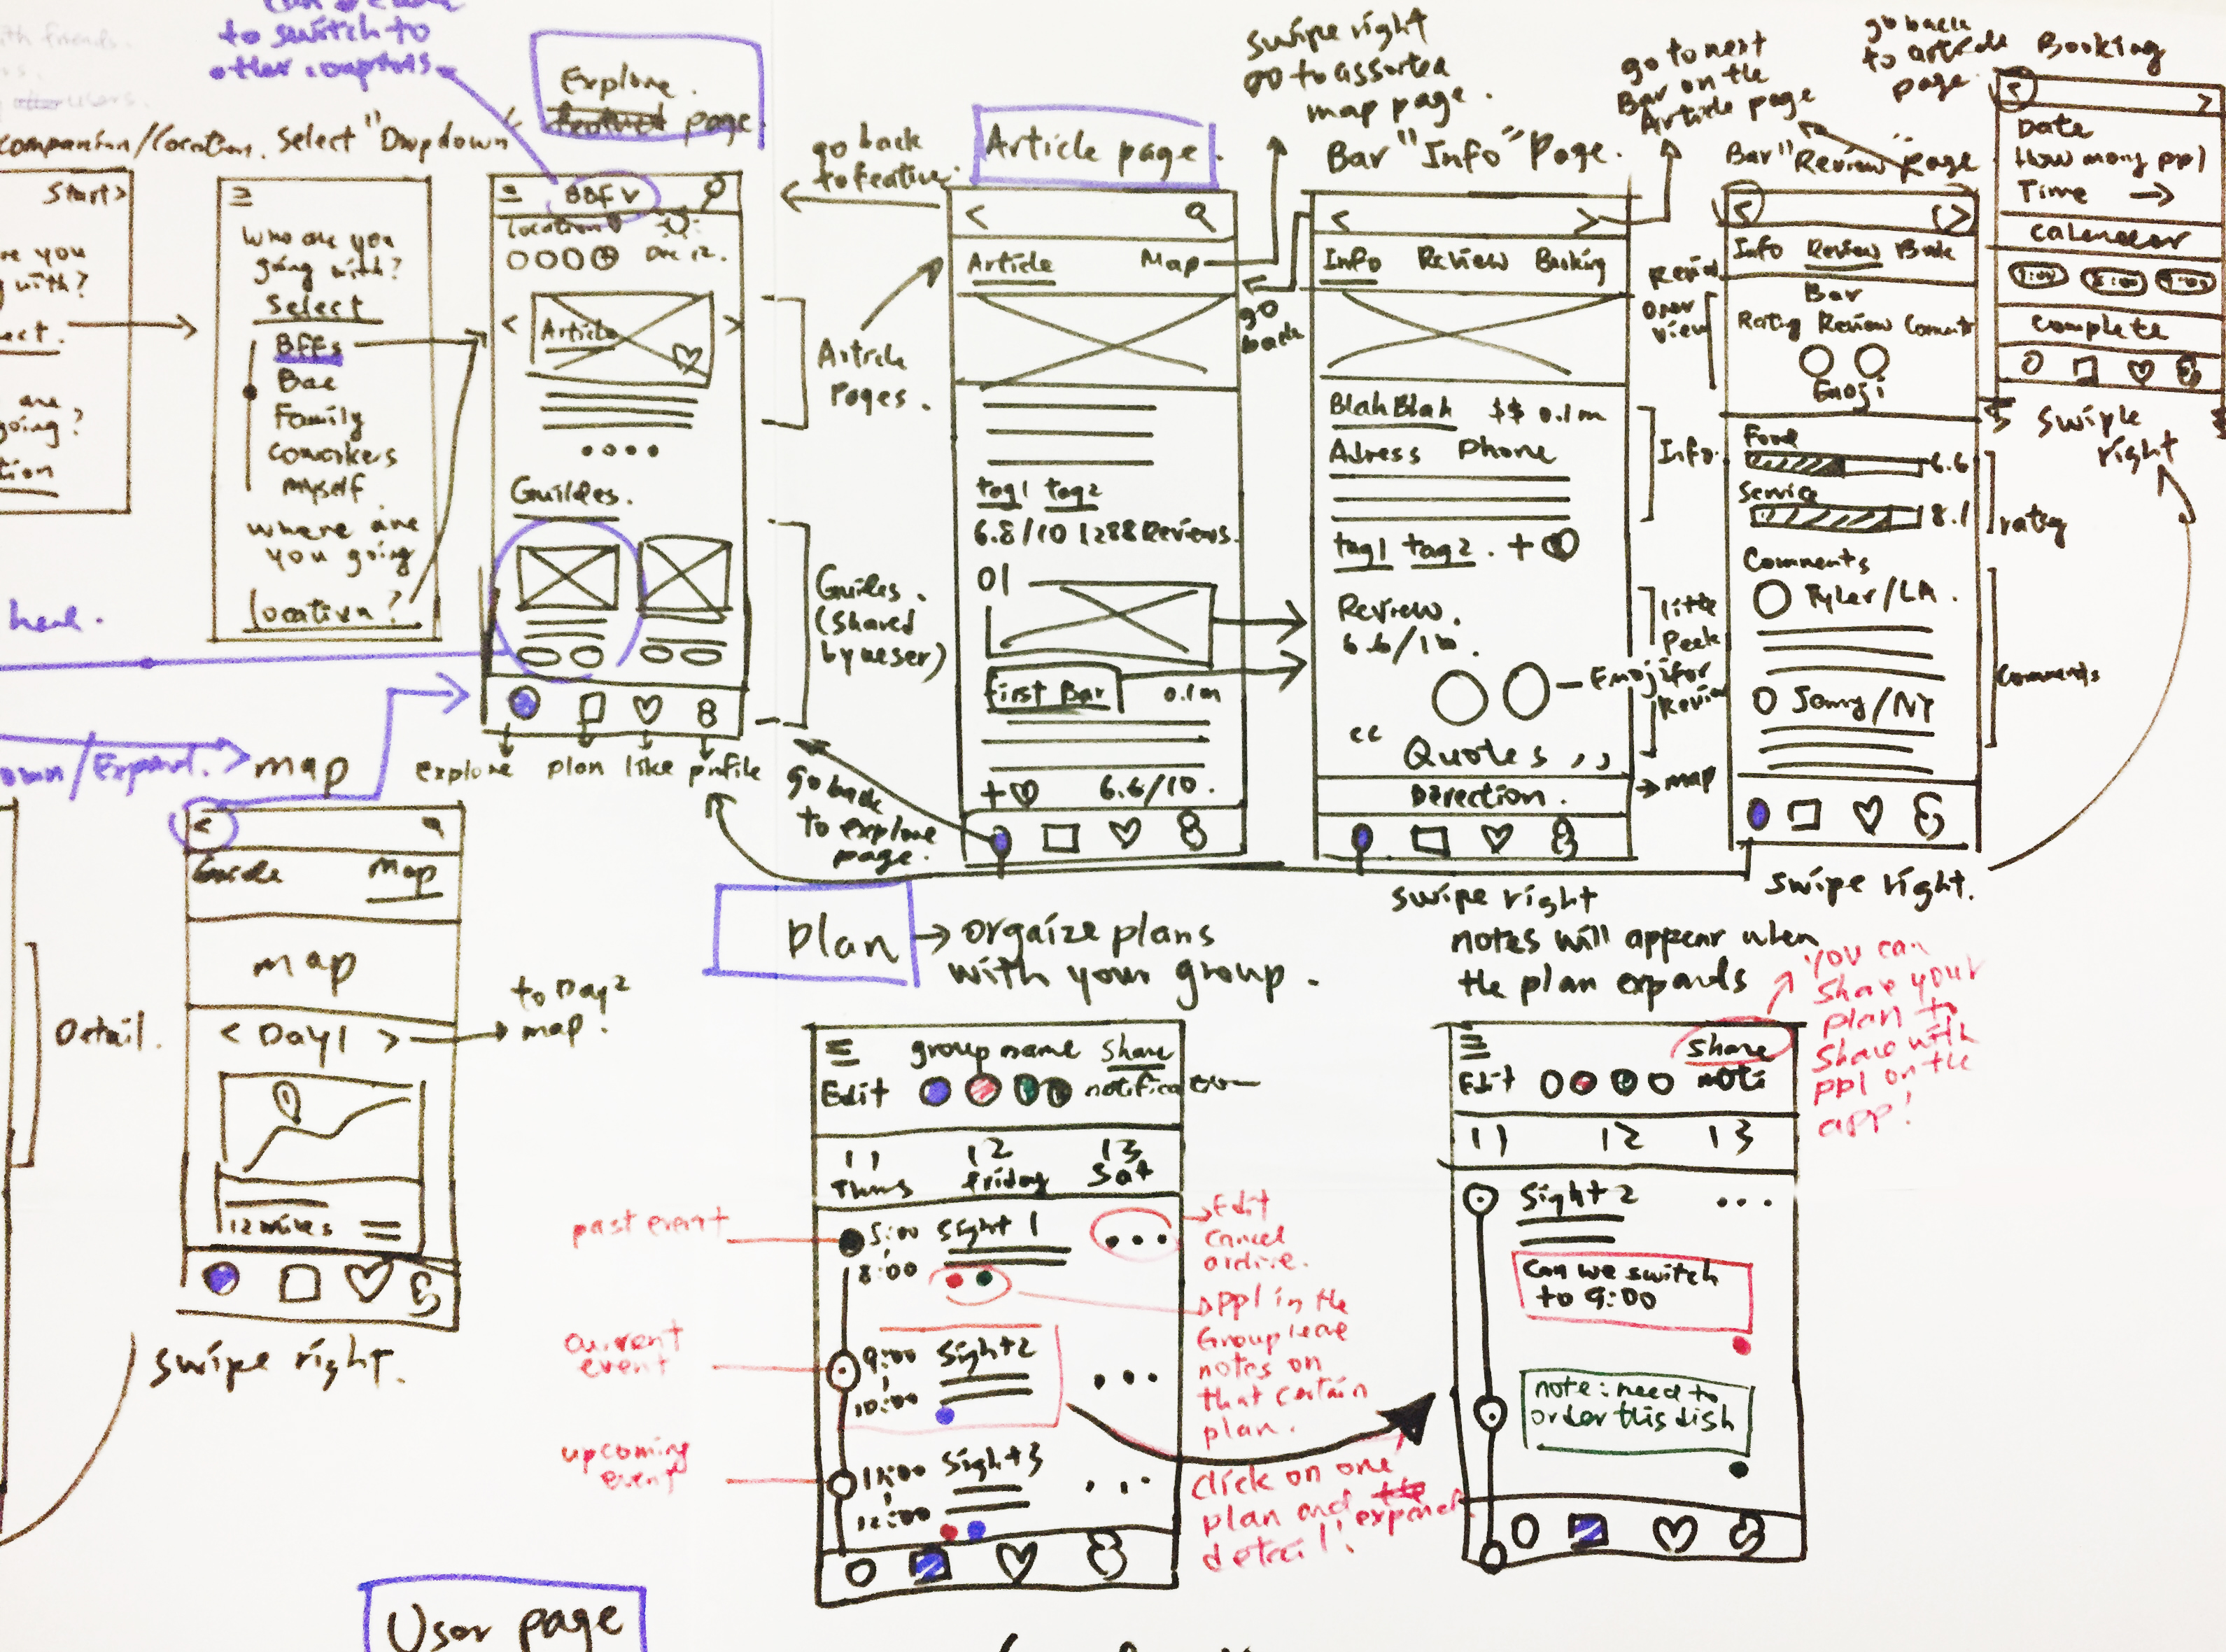 to switch to
other
Explore.
page
Companion/Location. Select "Dropdown"
Start>
you
with?
going?
Who are you
going with?
Select
BFFs
Bae
Family
Coworkers
myself
where are
you going
location?
BBF v
Location
Dec 12.
Article
Guildes.
explore plan like profile
Article
Pages.
Guiles.
(shared
by user)
go back
to feative
Article page.
Article Map
tag1 tag2
6.8/10 1288 Reviews.
01
first Bar 0.1m
+ 6.6/10.
go back
to explore
page.
swipe right
go to assorted
map page.
go
back
Bar "Info" Page.
Info Review Booking
BlahBlah $$ 0.1m
Adress Phone
tag1 tag2. +
Review.
6.6/10.
Quotes
Direction.
Info.
little
Peek
Emoji for
Review
map
swipe right
go to next
Bar on the
Article page
Bar "Review" Page
Info Review Book
Bar
Rating Review Comments
Emoji
Over
view
Food
6.6
Service
8.1
rating
Comments
Tyler/LA.
Jenny/NY
Comments
swipe right.
go back
to article
page.
Booking
Date
How many ppl
Time →
Calendar
Complete
swiple
right
own/Expand.
map
Guide Map
map
< Day1 >
to Day2
map.
12 miles
swipe right.
Detail.
Plan → orgaize plans
with your group.
group name share
Edit notification
11 12 13
Thurs friday Sat
past event
5:00 Sight 1
8:00
Edit
Cancel
ppl in the
Group leave
notes on
that certain
plan.
current
event
9:00 Sight2
10:00
upcoming
event
11:00 Sight3
12:00
Click on one
plan and expand
detail!
notes will appear when
the plan expands
you can
share your
plan to
share with
ppl on the
app!
share
Edit noti
11 12 13
Sight 2
Can we switch
to 9:00
note: need to
order this dish
User page